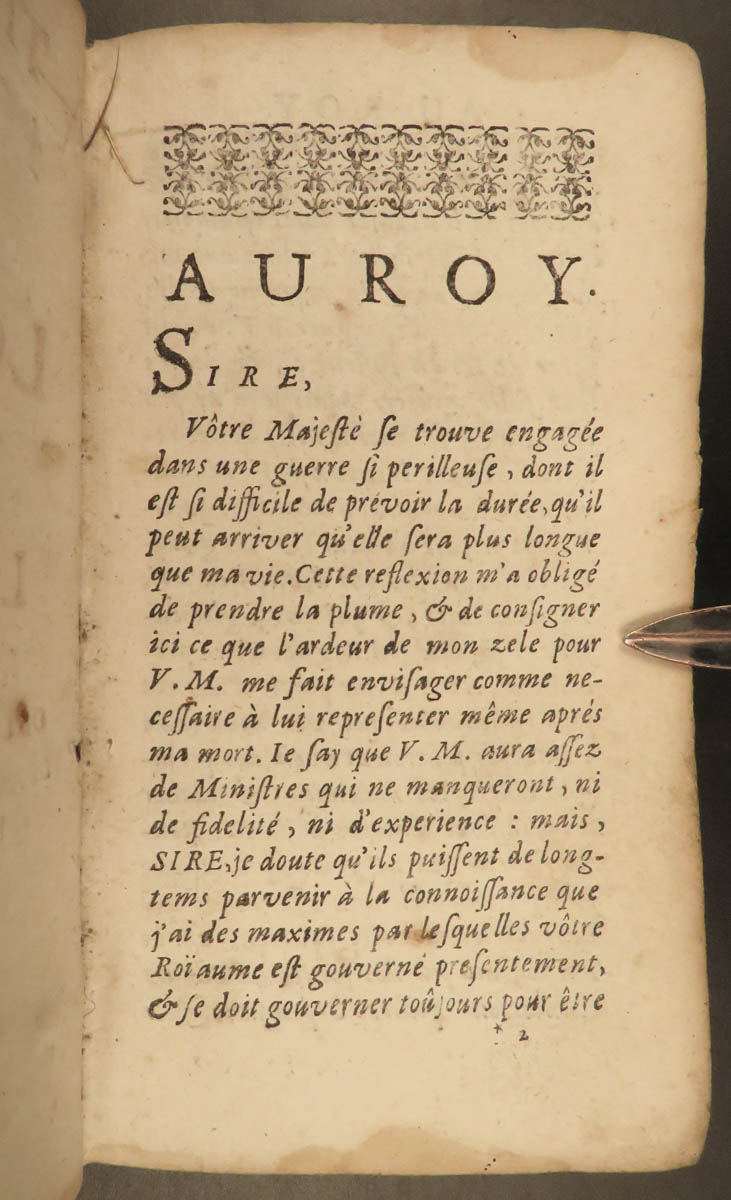 AU ROY.
SIRE,
Vôtre Majeſtè ſe trouve engagée
dans une guerre ſi perilleuſe, dont il
eſt ſi difficile de prévoir la durée, qu'il
peut arriver qu'elle ſera plus longue
que ma vie. Cette reflexion m'a obligé
de prendre la plume, & de conſigner
ici ce que l'ardeur de mon zele pour
V. M. me fait enviſager comme ne-
ceſſaire à lui repreſenter même aprés
ma mort. Ie ſay que V. M. aura aſſez
de Miniſtres qui ne manqueront, ni
de fidelité, ni d'experience : mais,
SIRE, je doute qu'ils puiſſent de long-
tems parvenir à la connoiſſance que
j'ai des maximes par leſquelles vôtre
Roïaume eſt gouverné preſentement,
& ſe doit gouverner toûjours pour être
* 2